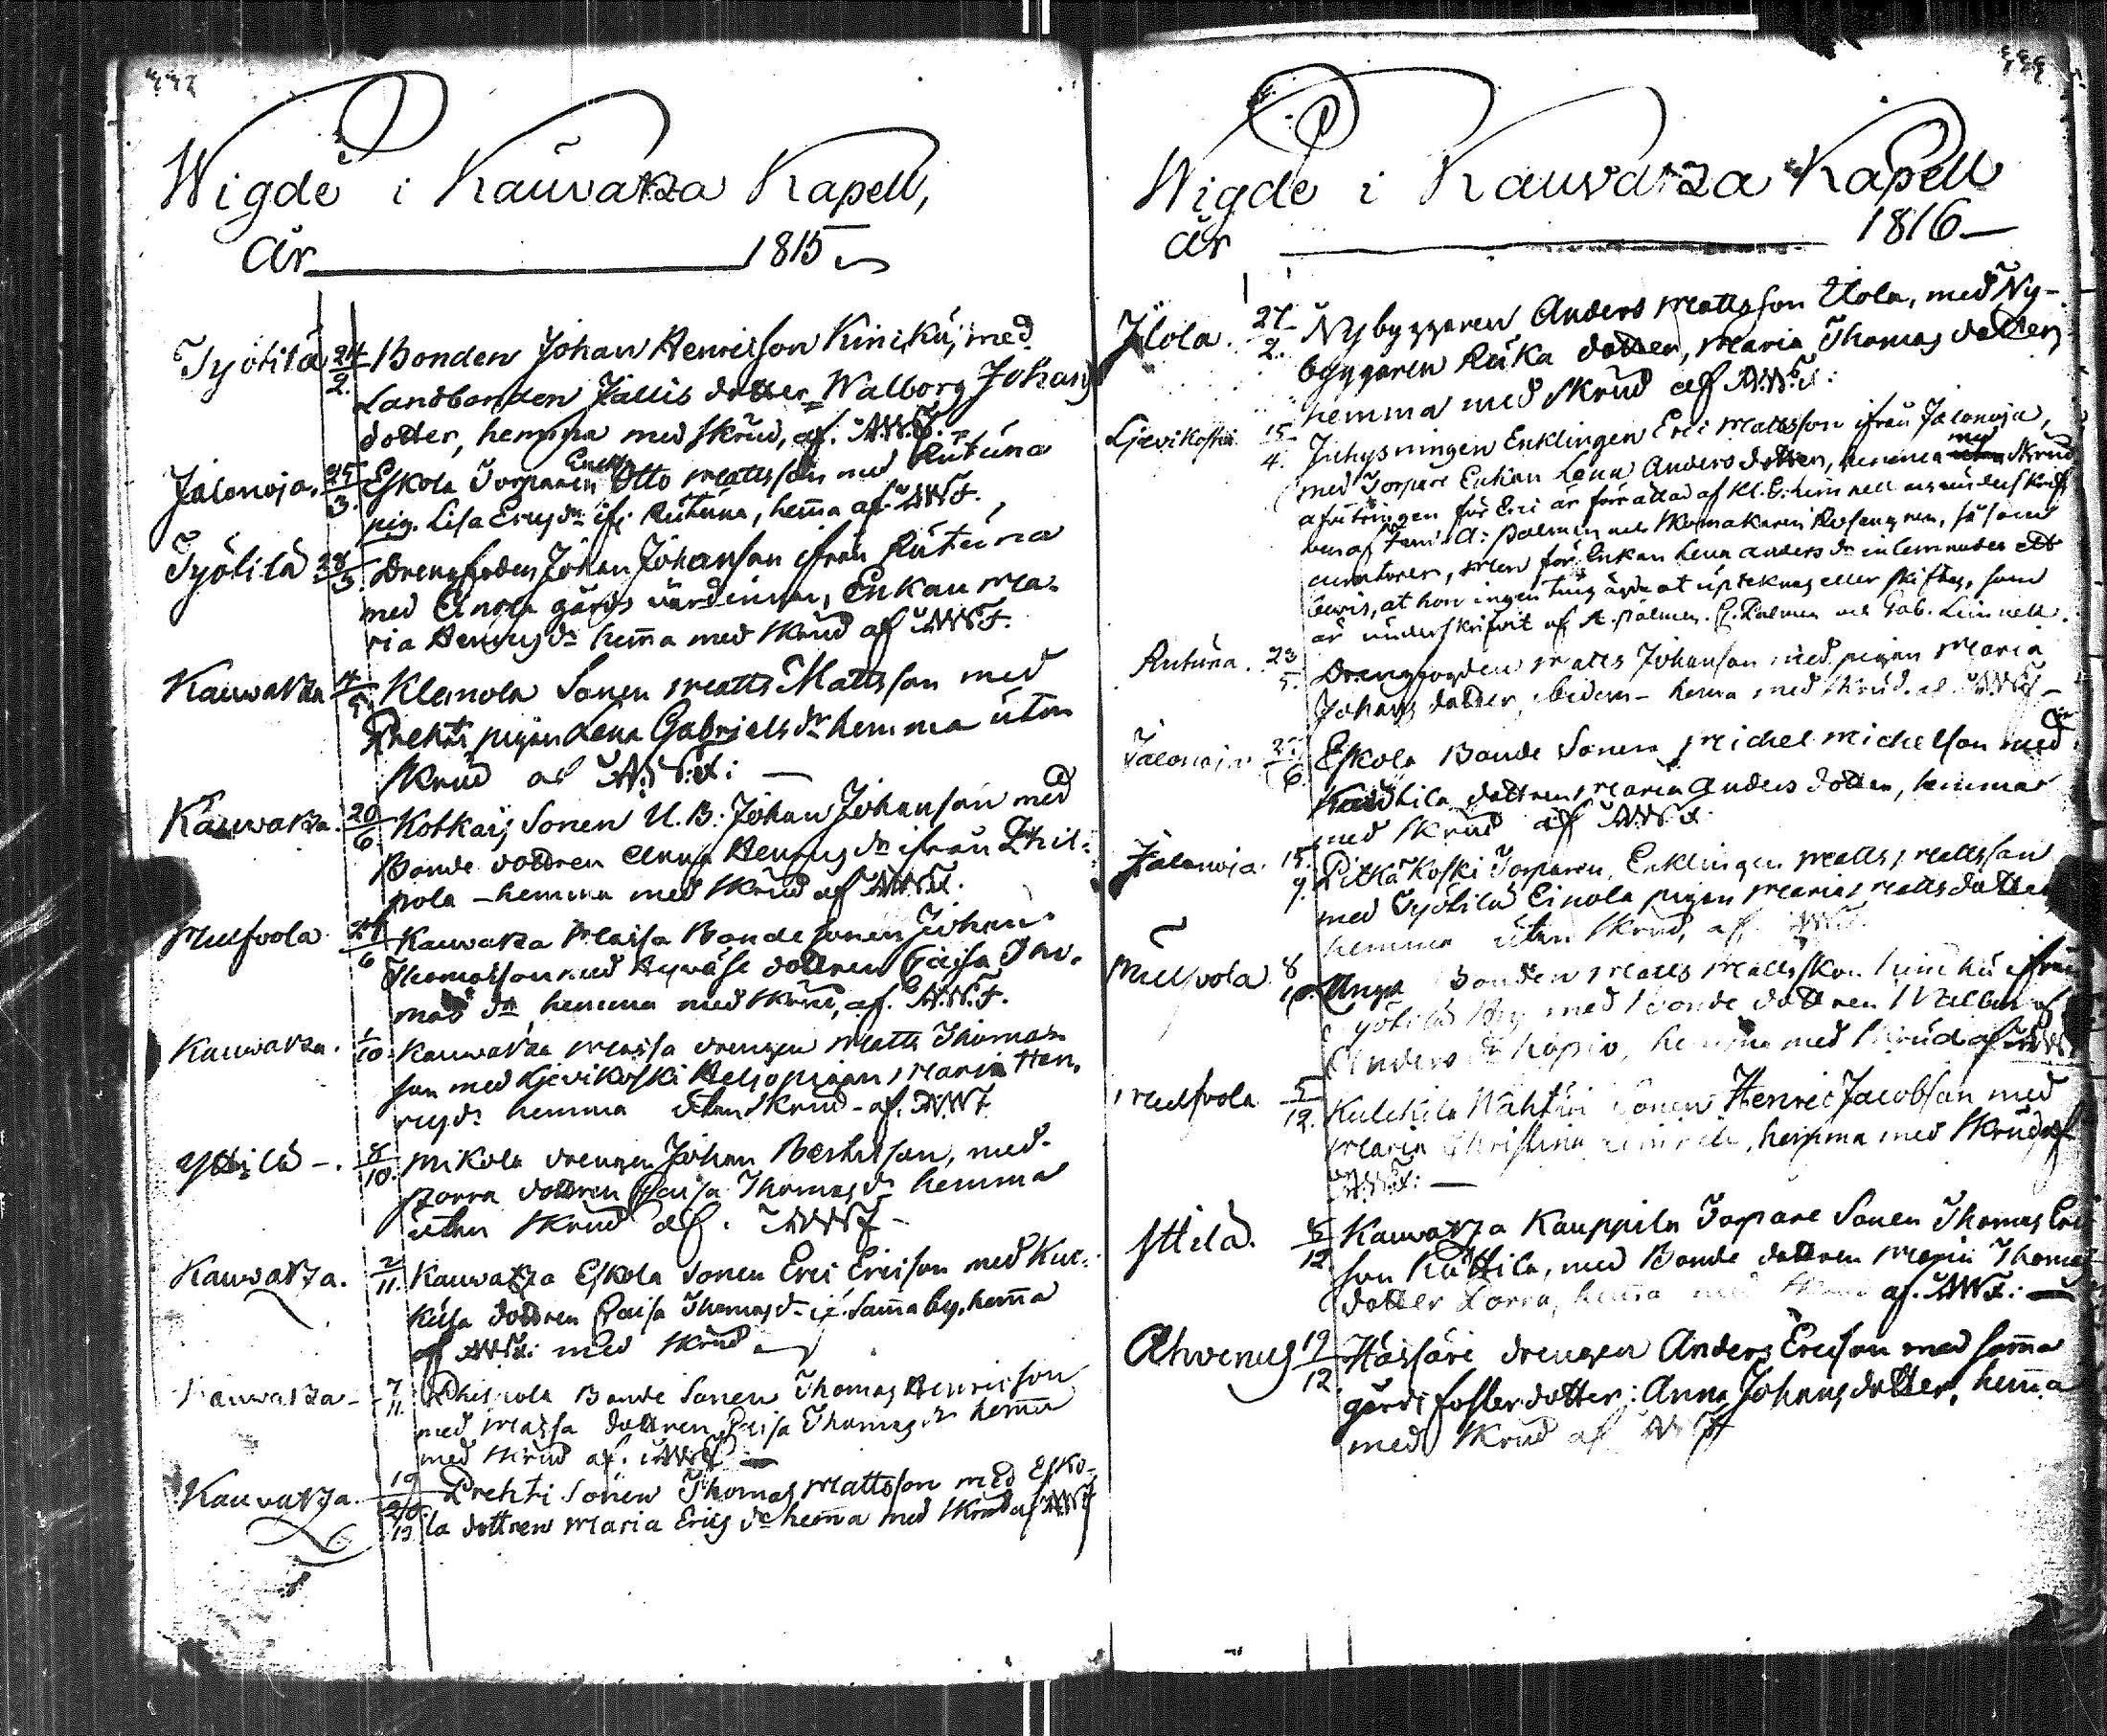 Wigde i Kauvatza Kapell,
År 1815
Työtilä 24/2. Bonden Johan Henricsson Kinikü, med
Landbonden Jällis dotter Walborg Johans
dotter, hemma med skrud, af. AWF.
Jalonoja. 25/3. Eskola Torparen Enkl. Otto Mattsson med Rutuna
pig. Lisa Ericsdr if. Rutuna, hem̄a af AWF.
Työtilä 28/5. Drengfogden Johan Johansson ifrån Rutuna
med Einola gårds värdinnan, Enkan Ma-
ria Henricsdr hem̄a med skrud af AWF.
Kauvatza Klemola Sonen Matts Mattsson med
Prehti pigan Lena Gabriels dr hemma utan
skrud af AWF:
Kauvatza. 20/6. Kotkais Sonen U.B: Johan Johansson med
Bonde dottren Anna Henrics dr ifrån Phil-
pola - hemma med skrud af AWF.
Kauvatza Maisa Bonde sonen Johan
Thomasson med Hyväse dottren Caisa Tho-
mas dr hemma med skrud, af. AWF.
Kauvatza. 1/10. Kauvatza Maisa drengen Matts Thomas
son med Kjevikoski pigan Maria Hen-
ricsdr hemma utan skrud - af. AWF
Yttilä -. 8/10. Mikola drengen Johan Bertilsson, med
Porra dottren Caisa Thomasdr hemma
utan skrud af. AWF -
Kauvatza. 2/11. Kauvatza Eskola Sonen Eric Ericsson med Kur-
kisa dottren Caisa Thomasdr if. Sam̄a by, hem̄a
af AWF: med skrud
Kauvatza - 7/11. Philpola Bonde Sonen Thomas Henricsson
med Maisa dottren Caisa Thomasdr hem̄a
med skrud af. AWF -
Kauvatza. Prehti Sonen Thomas Mattsson med Esko-
la dottren Maria Erics dr hem̄a med skrud af AWF
Wigde i Kauvatza Kapell
År 1816 -
Ylola. 27/2. Nybyggaren Anders Mattsson Uola, med Ny-
byggaren Ruka dotter, Maria Thomas dotter,
hemma med skrud af AWF:
Kjevikoski 15/4. Inhysningen Enklingen Eric Mattsson ifrån Jalonoja,
med Torpare Enkan Lena Anders dotter, hemma med skrud
afvitringen för Eric är förrättad af Kl. G. Limnell
A: Palmen och Skomakaren Rosengren, såsom
curatorer, men för Enkan Lena Anders dr inlemnades ett
bevis, at hon ingen ting ägde at uptekna eller skiftas, som
är underskrifvit af A. Palmen. Palmen och Gab. Limnell.
Rutuna. 23/5. Drengfogden Matts Johansson med pigan Maria
Johans dotter, ibidem - hem̄a med skrud. af AWF -
Jalonoja. Eskola Bonde Sonen Michel Michelsson med
dottren Maria Anders dotter, hemma
med skrud af AWF.
Jalonoja. 15/9. Pitkäkoski Torparen, Enklingen Matts Mattsson
med Työtilä Einola pigan Maria Matts dotter
hemma utan skrud, af AWF.
8 Unga Bonden Matts Mattsson ifrån
Työtilä By med Bonde dottren Walborg
Anders dr hemma med skrud af AWF
5/12. Kulckila Wahtiu Sonen Henric Jacobsson med
Maria Christina Limnell, hemma med skrud af
AWF: -
Yttilä. 8/12 Kauvatza Kauppila Torpare Sonen Thomas Eric
son Küttila, med Bonde dottren Maria Thomas
dotter Porra, hem̄a med skrud af. AWF: -
Ahvenus 19/12. Hässäri drengen Anders Ericsson med sam̄a
gårds fosterdotter: Anna Johans dotter, hem̄a
med skrud af AWF